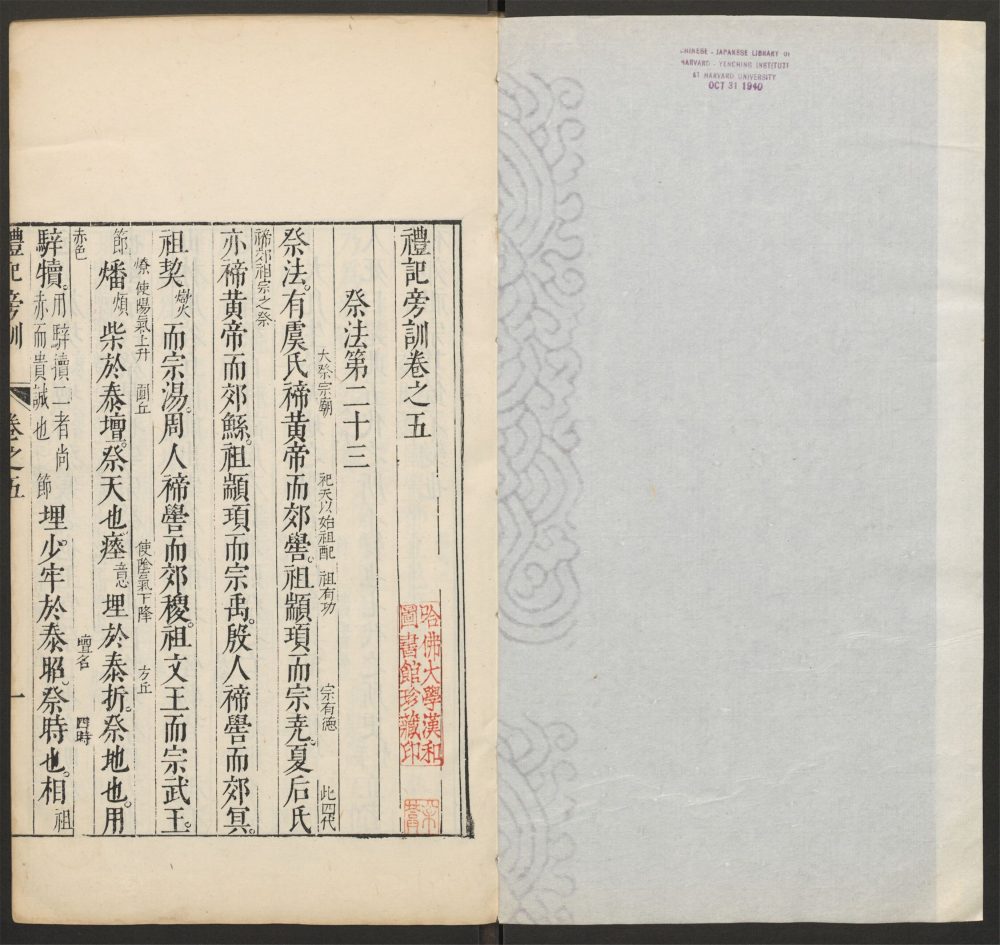 CHINESE - JAPANESE LIBRARY OF
HARVARD - YENCHING INSTITUTE
AT HARVARD UNIVERSITY
OCT 31 1940
禮記旁訓卷之五
哈佛大學漢和
圖書館珍藏印
祭法第二十三
大祭宗廟 祀天以始祖配 祖有功 宗有德 此四代
祭法。有虞氏禘黃帝而郊嚳。祖顓頊而宗堯。夏后氏
禘郊祖宗之祭
亦禘黃帝而郊鯀。祖顓頊而宗禹。殷人禘嚳而郊冥。
祖契燬而宗湯。周人禘嚳而郊稷。祖文王而宗武王。
燎 使陽氣上升 圓丘 使陰氣下降 方丘
節燔煩柴於泰壇。祭天也。瘞意埋於泰折。祭地也。用
赤色 壇名 四時
騂犢。用騂犢二者尚赤而貴誠也 節埋少牢於泰昭。祭時也。相祖
禮記旁訓 卷之五 一